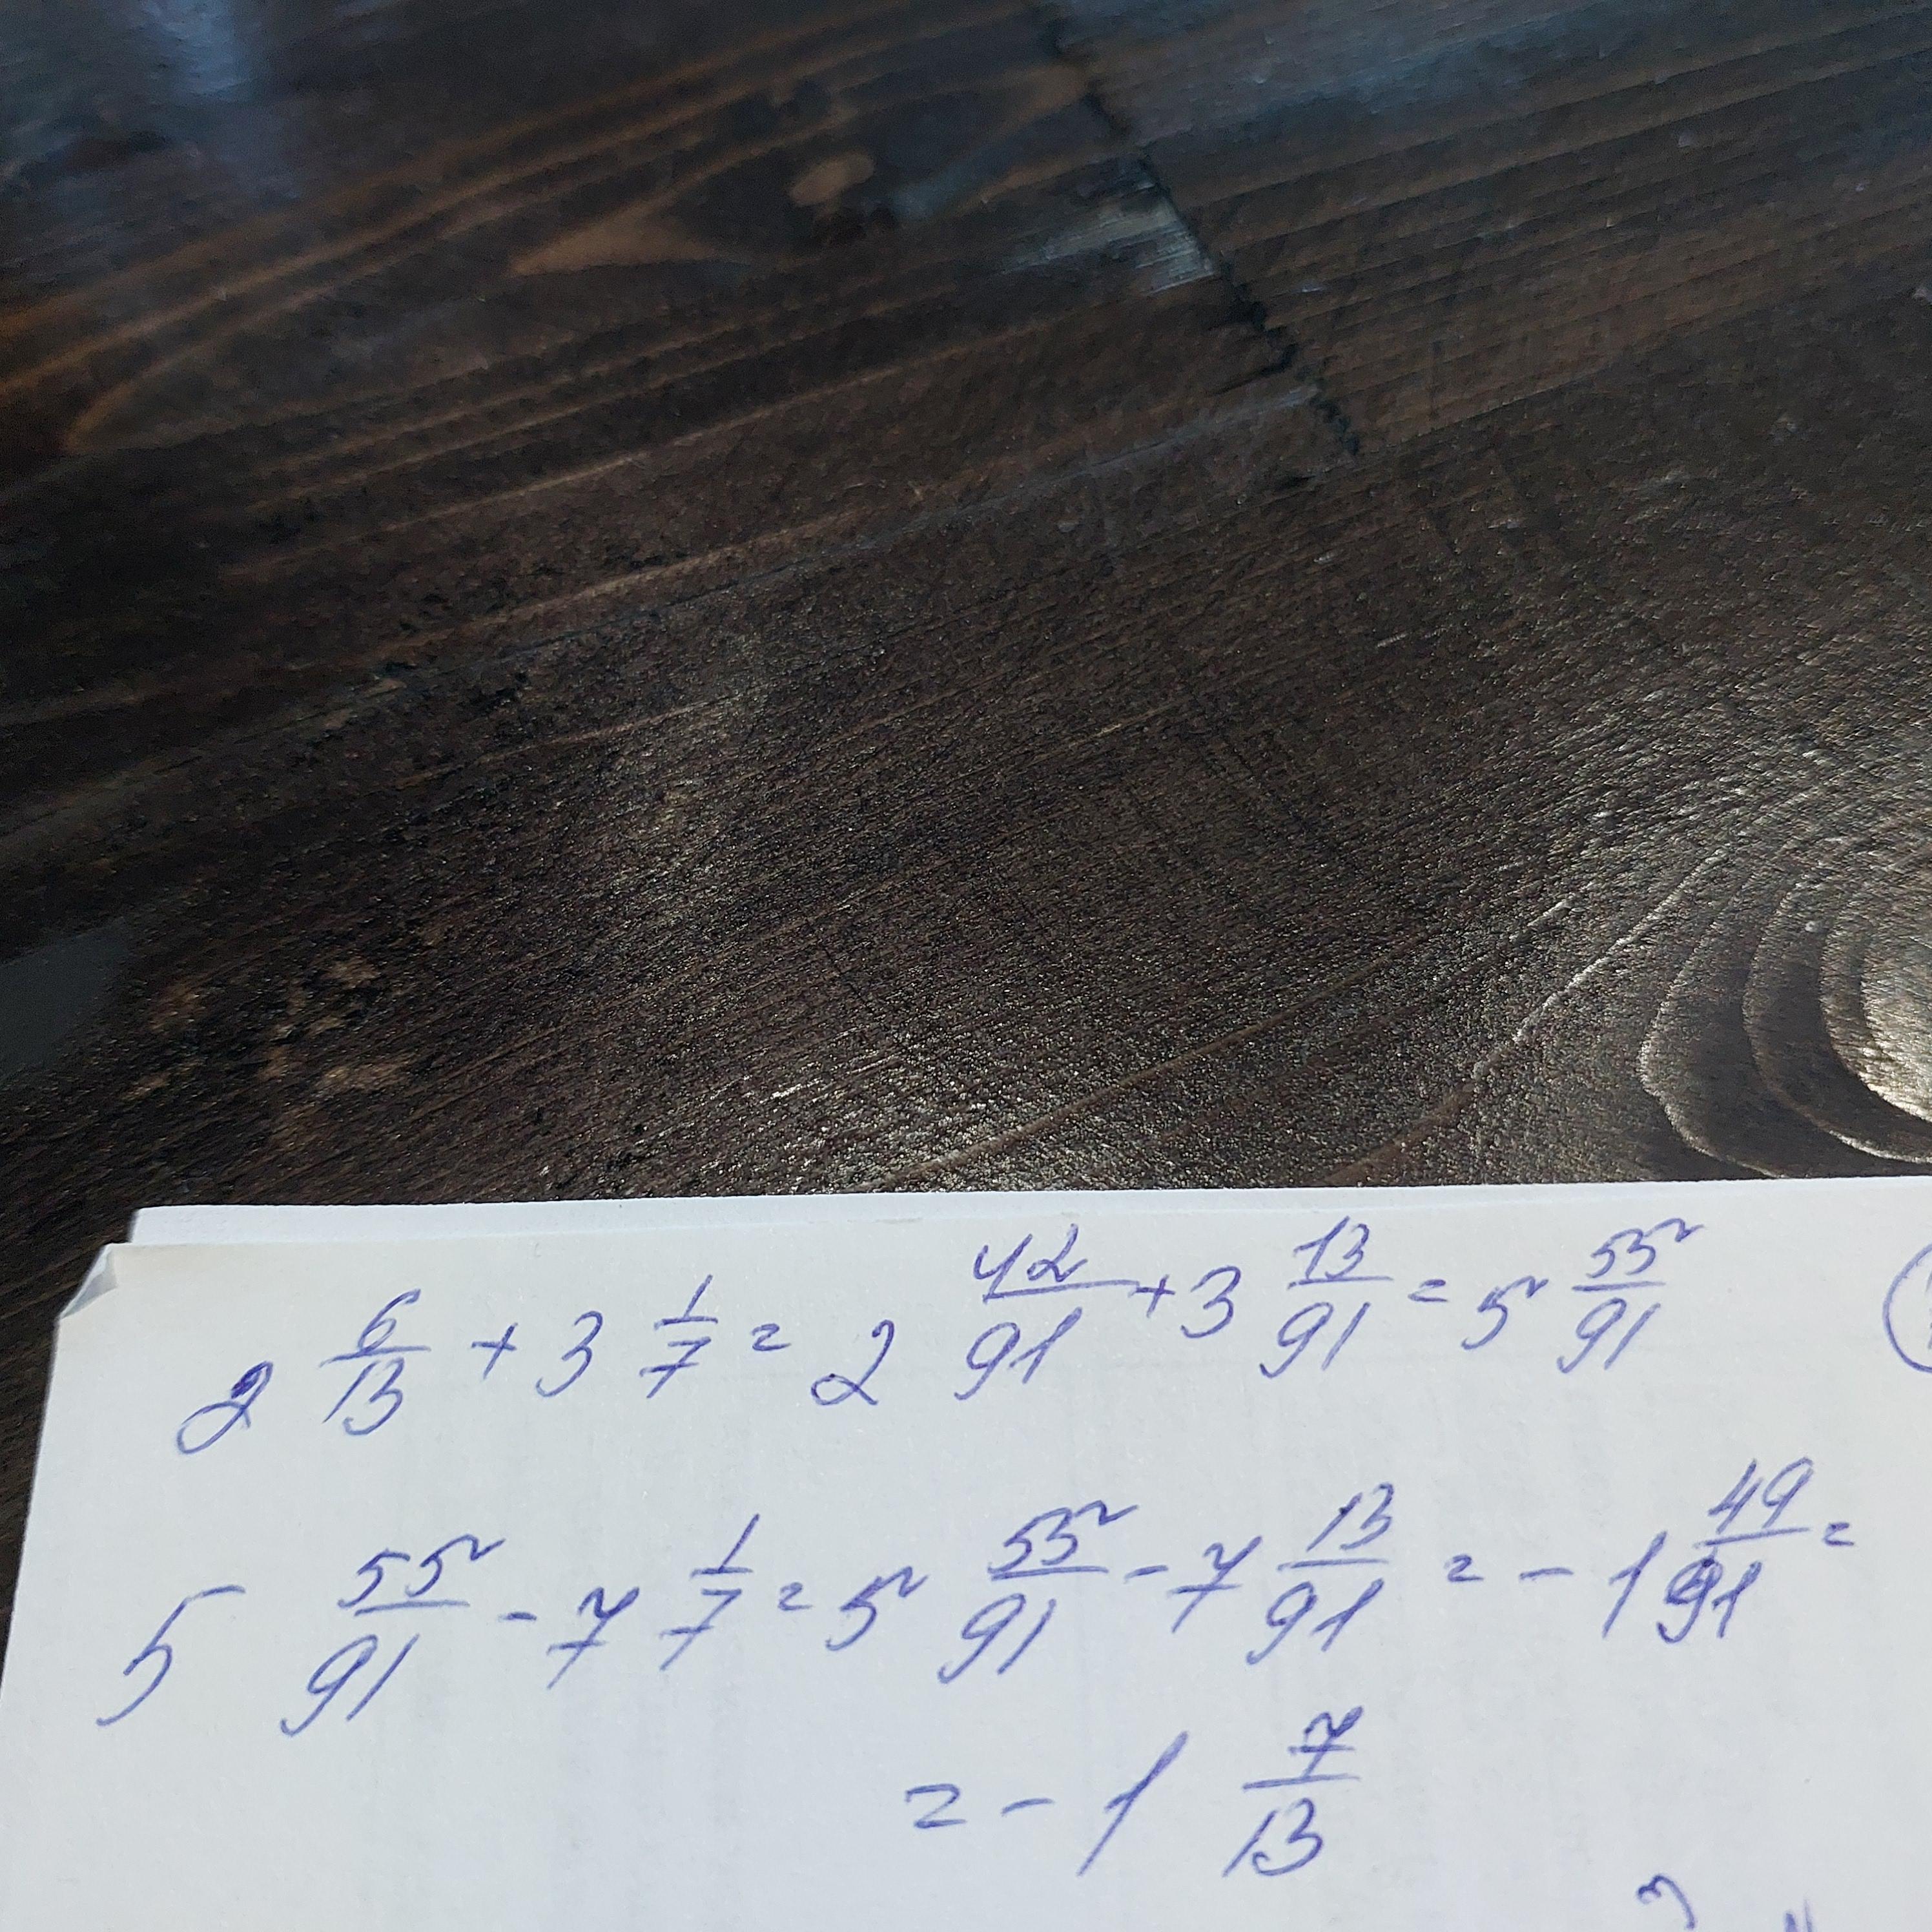 2 6/13 + 3 1/7 = 2 42/91 + 3 13/91 = 5 55/91
5 55/91 - 7 1/7 = 5 55/91 - 7 13/91 = - 1 49/91 =
= - 1 7/13